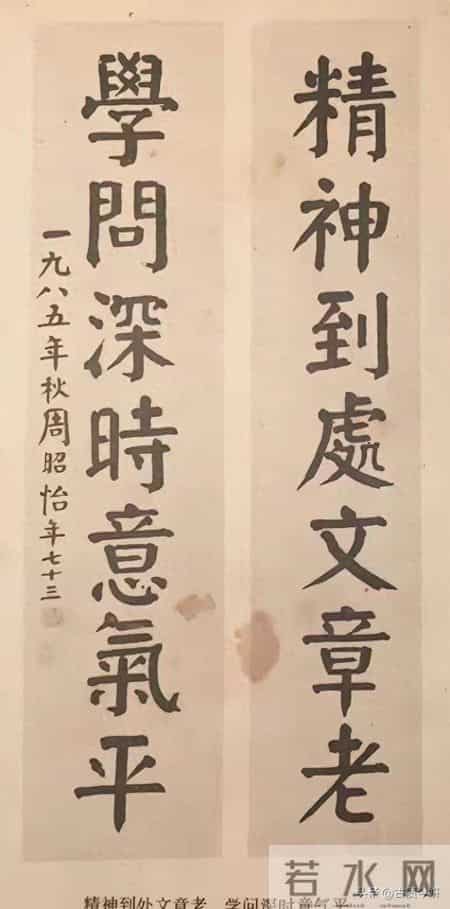 精神到處文章老
學問深時意氣平
一九八五年秋周昭怡年七十三
精神到处文章老 学问深时意气平
若水网
头条